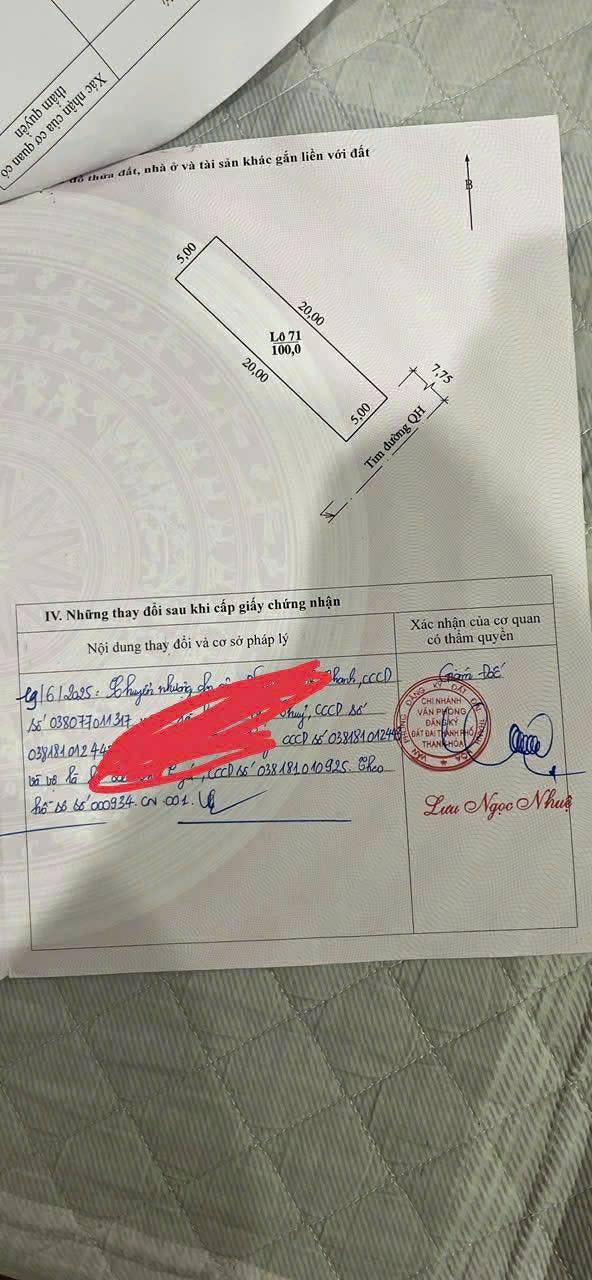 Xác nhận của cơ quan có
thẩm quyền
đồ thửa đất, nhà ở và tài sản khác gắn liền với đất
B
5,00
20,00
Lô 71
100,0
20,00
5,00
7,75
Tim đường QH
IV. Những thay đổi sau khi cấp giấy chứng nhận
Nội dung thay đổi và cơ sở pháp lý
Xác nhận của cơ quan
có thẩm quyền
19/6/2025: Chuyển nhượng cho Thanh, CCCD
số 038077011317 Thuỷ, CCCD số
038181012 CCCD số 038181012
và vợ là CCCD số 038181010925. Theo
hồ sơ số 000934.CN.001.
Giám Đốc
VĂN PHÒNG ĐĂNG KÝ ĐẤT ĐAI THANH HÓA
CHI NHÁNH
VĂN PHÒNG
ĐĂNG KÝ
ĐẤT ĐAI THÀNH PHỐ
THANH HÓA
Lưu Ngọc Nhuệ